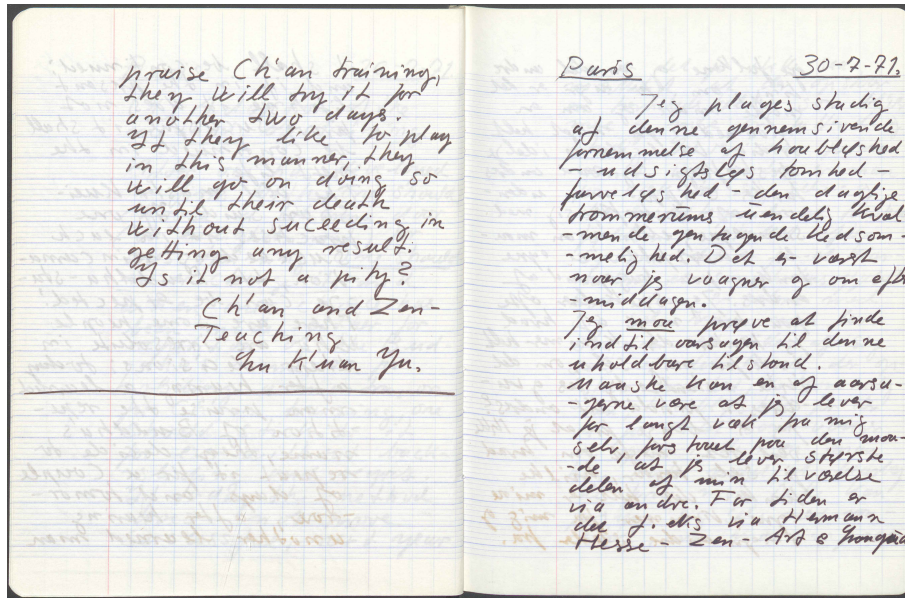 praise Ch'an training,
they will try it for
another two days.
If they like to play
in this manner, they
will go on doing so
until their death
without suceeding in
getting any result.
Is it not a pity?
Ch'an and Zen-
Teaching
Lu K'uan Yu.
Paris 30-7-71.
Jeg plages stadig
af denne gennemsivende
fornemmelse af håbløshed
- udsigtsløs tomhed -
farveløshed - den daglige
trommerums uendelig kval-
-mende gentagende kedsom-
-melighed. Det er værst
naar jeg vaagner og om efter
-middagen.
Jeg maa prøve at finde
ind til aarsagen til denne
uholdbare tilstand.
Maaske kan en af aarsa-
-gerne være at jeg lever
for langt væk fra mig
selv, forstaaet paa den maa-
-de at jeg lever største
delen af min tilværelse
via andre. For tiden er
det f. eks via Hermann
Hesse - Zen - Art &